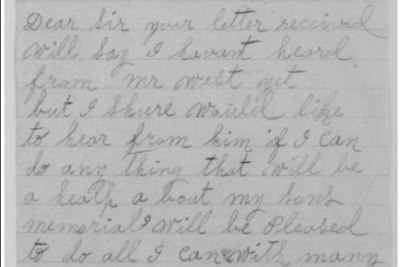 Dear Sir your letter received
will say I havent heard
from mr west yet
but I Shure would like
to hear from him if I can
do any thing that will be
a healp a bout my sons
memorial will be Pleased
to do all I can with many